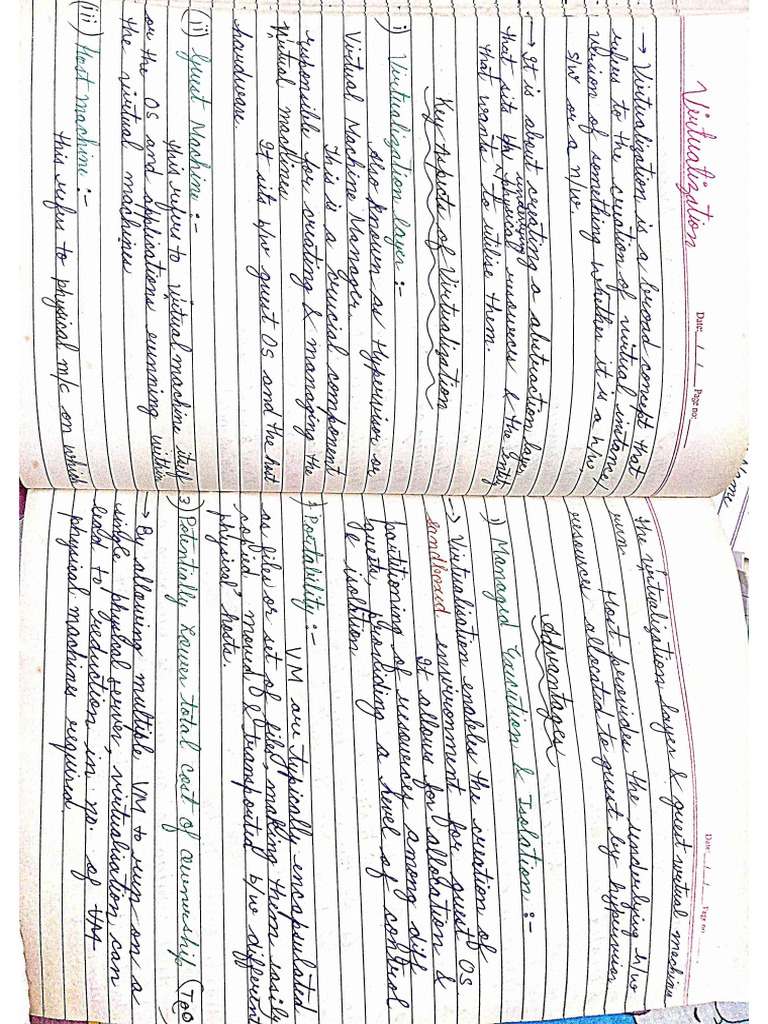 Virtualization
Date: __/__/__ Page no: ____
→ Virtualization is a broad concept that
refers to the creation of virtual instance/
version of something whether it is a h/w,
s/w or a n/w.
→ It is about creating a abstraction layer
that sits b/w underlying physical resources & the Entity
that wants to utilise them.
Key Aspects of Virtualization
i) Virtualization layer :-
also known as Hypervisor or
Virtual Machine Manager.
This is a crucial component
responsible for creating & managing the
virtual machines
It sits b/w guest OS and the host
hardware.
(ii) Guest Machine :-
this refers to virtual machine itself
or the OS and applications running within
the virtual machines
(iii) Host machine :-
this refers to physical m/c on which
Date: __/__/__ Page no: ____
the virtualization layer & guest virtual machine
run
Host provides the underlying h/w
resources allocated to guest by hypervisor
Advantages
1) Managed Execution & Isolation :-
→ Virtualisation enables the creation of
sandboxed environment for guest OS.
It allows for allocation &
partitioning of resources among diff
guests, providing a level of control
& isolation
Portability :-
VM are typically encapsulated
as files or set of files, making them easily
copied, moved & transported b/w different
physical hosts.
3) Potentially Lower total cost of ownership (TCO
→ By allowing multiple VM to run on a
single physical server, virtualization can
lead to reduction in no. of
physical machines required.